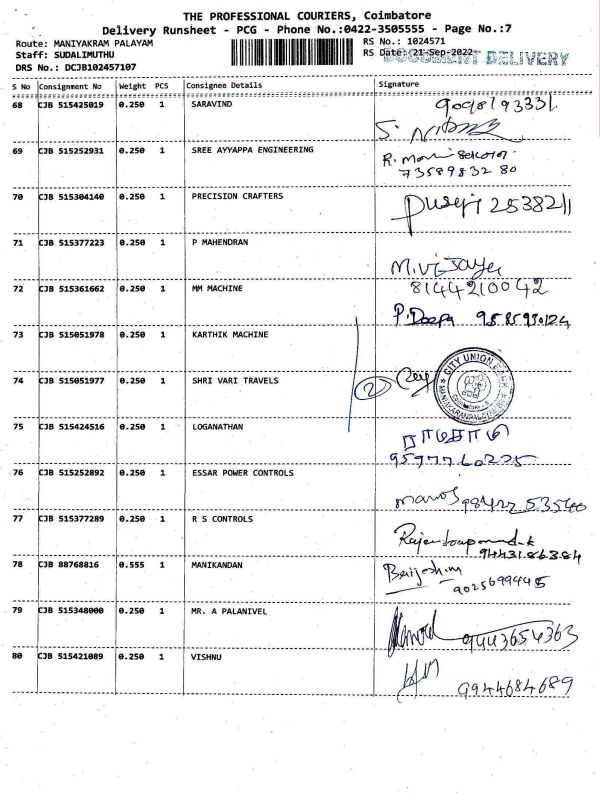 THE PROFESSIONAL COURIERS, Coimbatore
Delivery Runsheet - PCG - Phone No.:0422-3505555 - Page No.:7
Route: MANIYAKRAM PALAYAM
Staff: SUDALIMUTHU
DRS No.: DCJB102457107
RS No.: 1024571
RS Date: 21-Sep-2022
DOCUMENT DELIVERY
S No Consignment No Weight PCS Consignee Details Signature
68 CJB 515425019 0.250 1 SARAVIND
69 CJB 515252931 0.250 1 SREE AYYAPPA ENGINEERING
73589832 80
70 CJB 515304140 0.250 1 PRECISION CRAFTERS 2538211
71 CJB 515377223 0.250 1 P MAHENDRAN
M. Vijaya
72 CJB 515361662 0.250 1 MM MACHINE 8144210042
P. Deepa
73 CJB 515051978 0.250 1 KARTHIK MACHINE
74 CJB 515051977 0.250 1 SHRI VARI TRAVELS 2 CITY UNION BANK
75 CJB 515424516 0.250 1 LOGANATHAN
76 CJB 515252892 0.250 1 ESSAR POWER CONTROLS
Manoj 98422 53540
77 CJB 515377289 0.250 1 R S CONTROLS
9443186384
78 CJB 88768816 0.555 1 MANIKANDAN Brijesh.m
9025699445
79 CJB 515348000 0.250 1 MR. A PALANIVEL
9443654363
80 CJB 515421089 0.250 1 VISHNU
9944684689